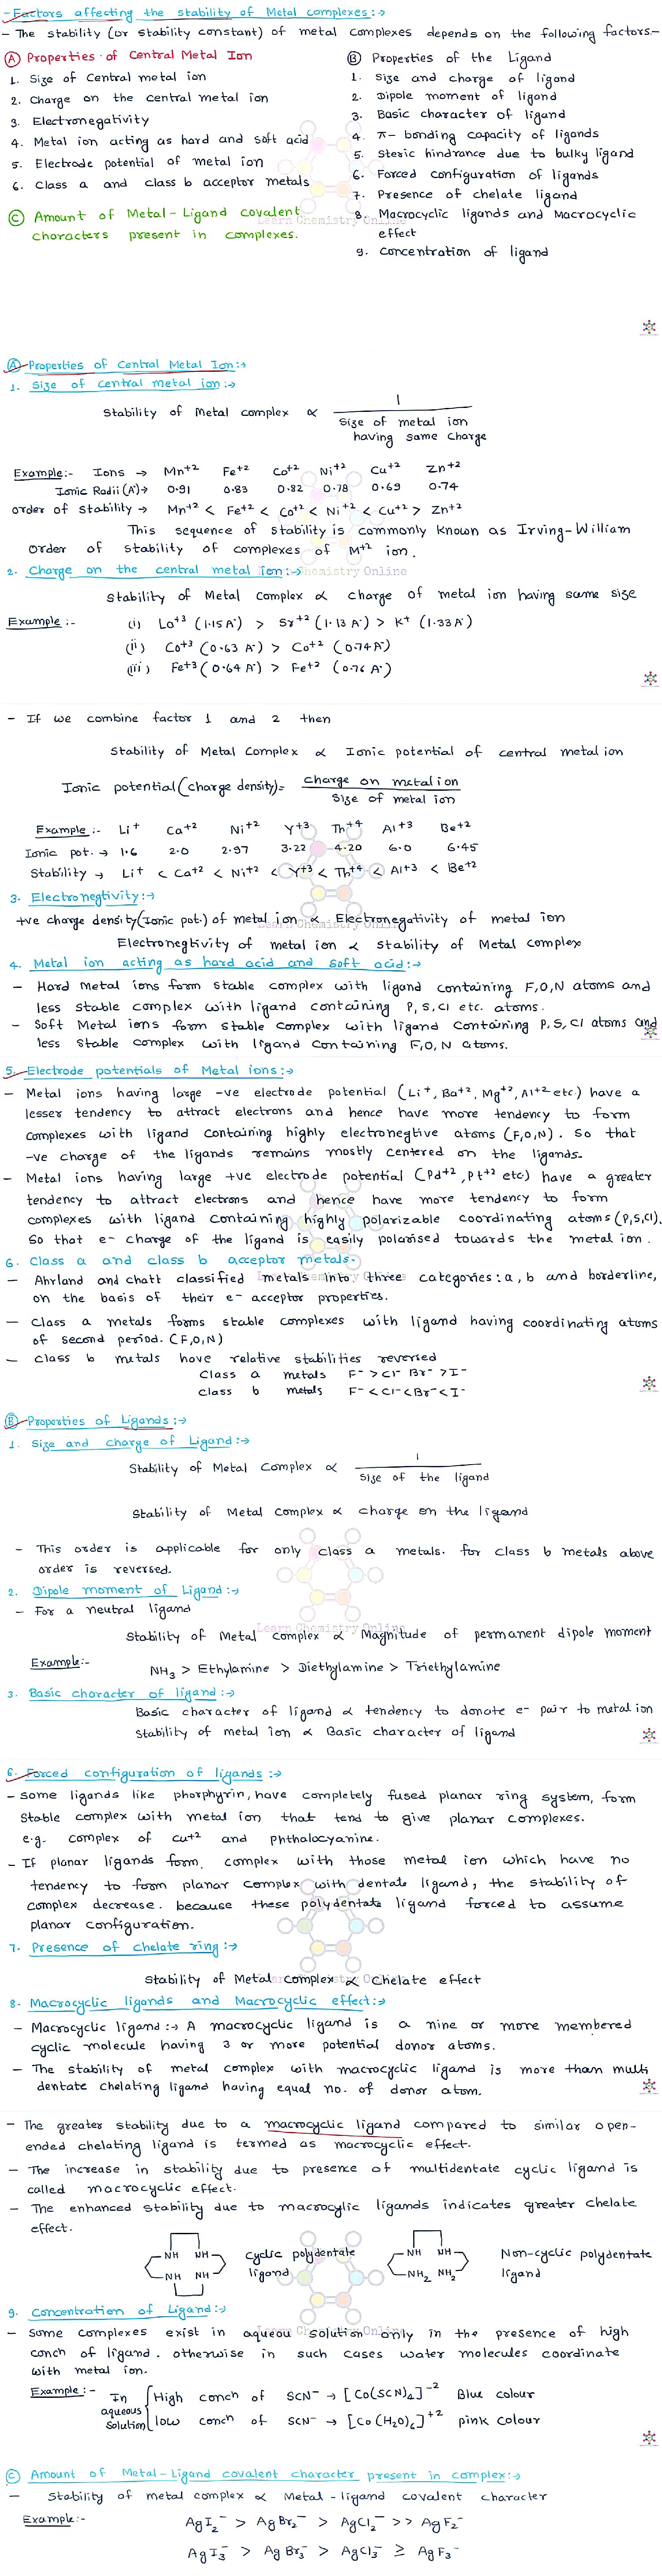 - Factors affecting the stability of Metal complexes :→
- The stability (or stability constant) of metal complexes depends on the following factors:-
Ⓐ Properties of Central Metal Ion
1. Size of Central metal ion
2. Charge on the central metal ion
3. Electronegativity
4. Metal ion acting as hard and soft acid
5. Electrode potential of metal ion
6. Class a and class b acceptor metals
Ⓒ Amount of Metal-Ligand covalent
characters present in complexes.
Ⓑ Properties of the Ligand
1. Size and charge of ligand
2. Dipole moment of ligand
3. Basic character of ligand
4. π- bonding capacity of ligands
5. Steric hindrance due to bulky ligand
6. Forced configuration of ligands
7. Presence of chelate ligand
8. Macrocyclic ligands and Macrocyclic
effect
9. Concentration of ligand
Learn Chemistry Online
Ⓐ Properties of Central Metal Ion :→
1. Size of central metal ion :→
Stability of Metal complex ∝ 1
Size of metal ion
having same charge
Example:- Ions → Mn+2 Fe+2 Co+2 Ni+2 Cu+2 Zn+2
Ionic Radii (A°)→ 0.91 0.83 0.82 0.78 0.69 0.74
order of stability → Mn+2 < Fe+2 < Co+2 < Ni+2 < Cu+2 > Zn+2
This sequence of stability is commonly known as Irving-William
order of stability of complexes of M+2 ion.
2. Charge on the central metal ion :→
Learn Chemistry Online
Stability of Metal Complex ∝ charge of metal ion having same size
Example :- (i) La+3 (1.15 A°) > Sr+2 (1.13 A°) > K+ (1.33 A°)
(ii) Co+3 (0.63 A°) > Co+2 (0.74 A°)
(iii) Fe+3 (0.64 A°) > Fe+2 (0.76 A°)
- If we combine factor 1 and 2 then
Stability of Metal Complex ∝ Ionic potential of central metal ion
Ionic potential (charge density) = charge on metal ion
Size of metal ion
Example :- Li+ Ca+2 Ni+2 Y+3 Th+4 Al+3 Be+2
Ionic pot. → 1.6 2.0 2.97 3.22 4.20 6.0 6.45
Stability → Li+ < Ca+2 < Ni+2 < Y+3 < Th+4 < Al+3 < Be+2
3. Electronegtivity :→
+ve charge density (Ionic pot.) of metal ion ∝ Electronegativity of metal ion
Learn Chemistry Online
Electronegtivity of metal ion ∝ stability of Metal complex
4. Metal ion acting as hard acid and soft acid :→
- Hard Metal ions form stable complex with ligand containing F,O,N atoms and
less stable complex with ligand containing P, S, Cl etc. atoms.
- Soft Metal ions form stable complex with ligand containing P, S, Cl atoms and
less stable complex with ligand containing F, O, N atoms.
5. Electrode potentials of Metal ions :→
- Metal ions having large -ve electrode potential (Li+, Ba+2, Mg+2, Al+2 etc.) have a
lesser tendency to attract electrons and hence have more tendency to form
complexes with ligand containing highly electronegtive atoms (F,O,N). So that
-ve charge of the ligands remains mostly centered on the ligands.
- Metal ions having large +ve electrode potential (Pd+2, Pt+2 etc) have a greater
tendency to attract electrons and hence have more tendency to form
complexes with ligand containing highly polarizable coordinating atoms (P,S,Cl).
So that e- charge of the ligand is easily polarised towards the metal ion.
6. Class a and class b acceptor metals.
Learn Chemistry Online
- Ahrland and chatt classified metals into three categories: a, b and borderline,
on the basis of their e- acceptor properties.
- Class a metals forms stable complexes with ligand having coordinating atoms
of second period. (F,O,N)
- Class b metals have relative stabilities reversed
Class a metals F- > Cl- Br- > I-
Class b metals F- < Cl- < Br- < I-
Ⓑ Properties of Ligands :→
1. Size and charge of Ligand :→
Stability of Metal Complex ∝ 1
Size of the ligand
Stability of Metal Complex ∝ charge on the ligand
- This order is applicable for only class a metals. for class b metals above
order is reversed.
2. Dipole moment of Ligand :→
- For a neutral ligand
Learn Chemistry Online
Stability of Metal complex ∝ Magnitude of permanent dipole moment
Example:- NH3 > Ethylamine > Diethylamine > Triethylamine
3. Basic character of ligand :→
Basic character of ligand ∝ tendency to donate e- pair to metal ion
Stability of metal ion ∝ Basic character of ligand
6. Forced configuration of ligands :→
- Some ligands like phorphyrin, have completely fused planar ring system, form
Stable complex with metal ion that tend to give planar complexes.
e.g. complex of Cu+2 and phthalocyanine.
- If planar ligands form complex with those metal ion which have no
tendency to form planar complex with dentate ligand, the stability of
complex decrease. because these polydentate ligand forced to assume
planar configuration.
7. Presence of chelate ring :→
Learn Chemistry Online
Stability of Metal complex ∝ Chelate effect
8. Macrocyclic ligands and Macrocyclic effect:→
- Macrocyclic ligand :→ A macrocyclic ligand is a nine or more membered
cyclic molecule having 3 or more potential donor atoms.
- The stability of metal complex with macrocyclic ligand is more than multi
dentate chelating ligand having equal no. of donor atom.
- The greater stability due to a macrocyclic ligand compared to similar open-
ended chelating ligand is termed as macrocyclic effect.
- The increase in stability due to presence of multidentate cyclic ligand is
called macrocyclic effect.
- The enhanced stability due to macrocylic ligands indicates greater chelate
effect.
NH NH
NH NH
Cyclic polydentate
ligand
NH NH
NH2 NH2
Non-cyclic polydentate
ligand
9. Concentration of Ligand :→
Learn Chemistry Online
- Some complexes exist in aqueou solution only in the presence of high
conch of ligand. otherwise in such cases water molecules coordinate
with metal ion.
Example :- In aqueous Solution
High conch of SCN- → [Co(SCN)4]-2 Blue colour
low conch of SCN- → [Co(H2O)6]+2 pink colour
Ⓒ Amount of Metal-Ligand covalent character present in complex:→
- Stability of metal complex ∝ Metal-ligand covalent character
Example:- AgI2- > AgBr2- > AgCl2- >> AgF2-
AgI3- > AgBr3- > AgCl3- ≥ AgF3-